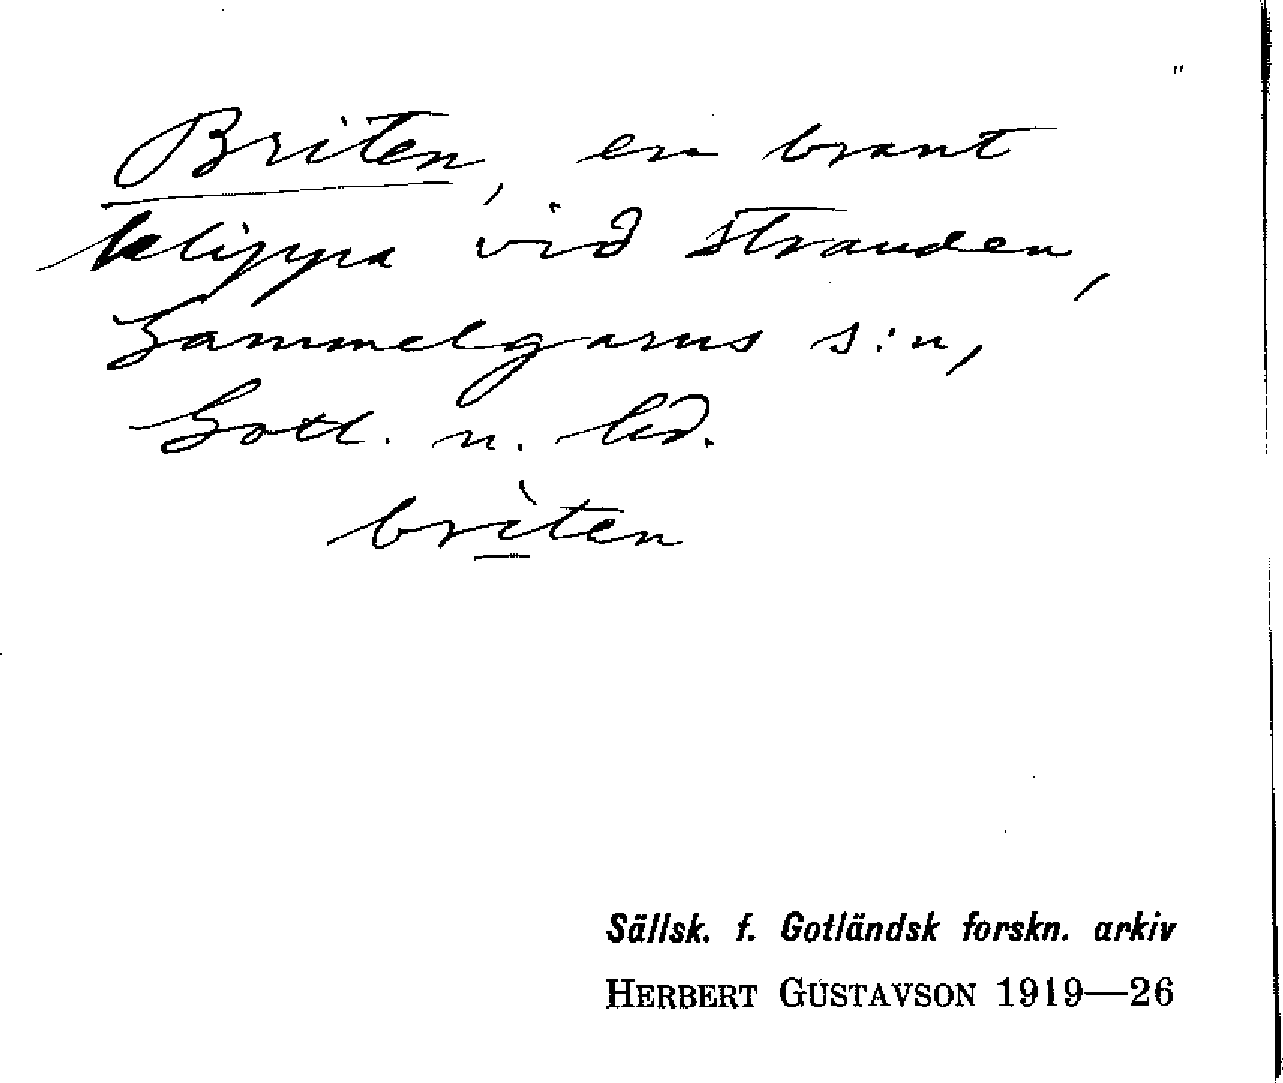 Briten, en brant
klippa vid stranden,
Gammelgarns s:n,
Gotl. n. hd.
brìten
Sällsk. f. Gotländsk forskn. arkiv
HERBERT GUSTAVSON 1919—26